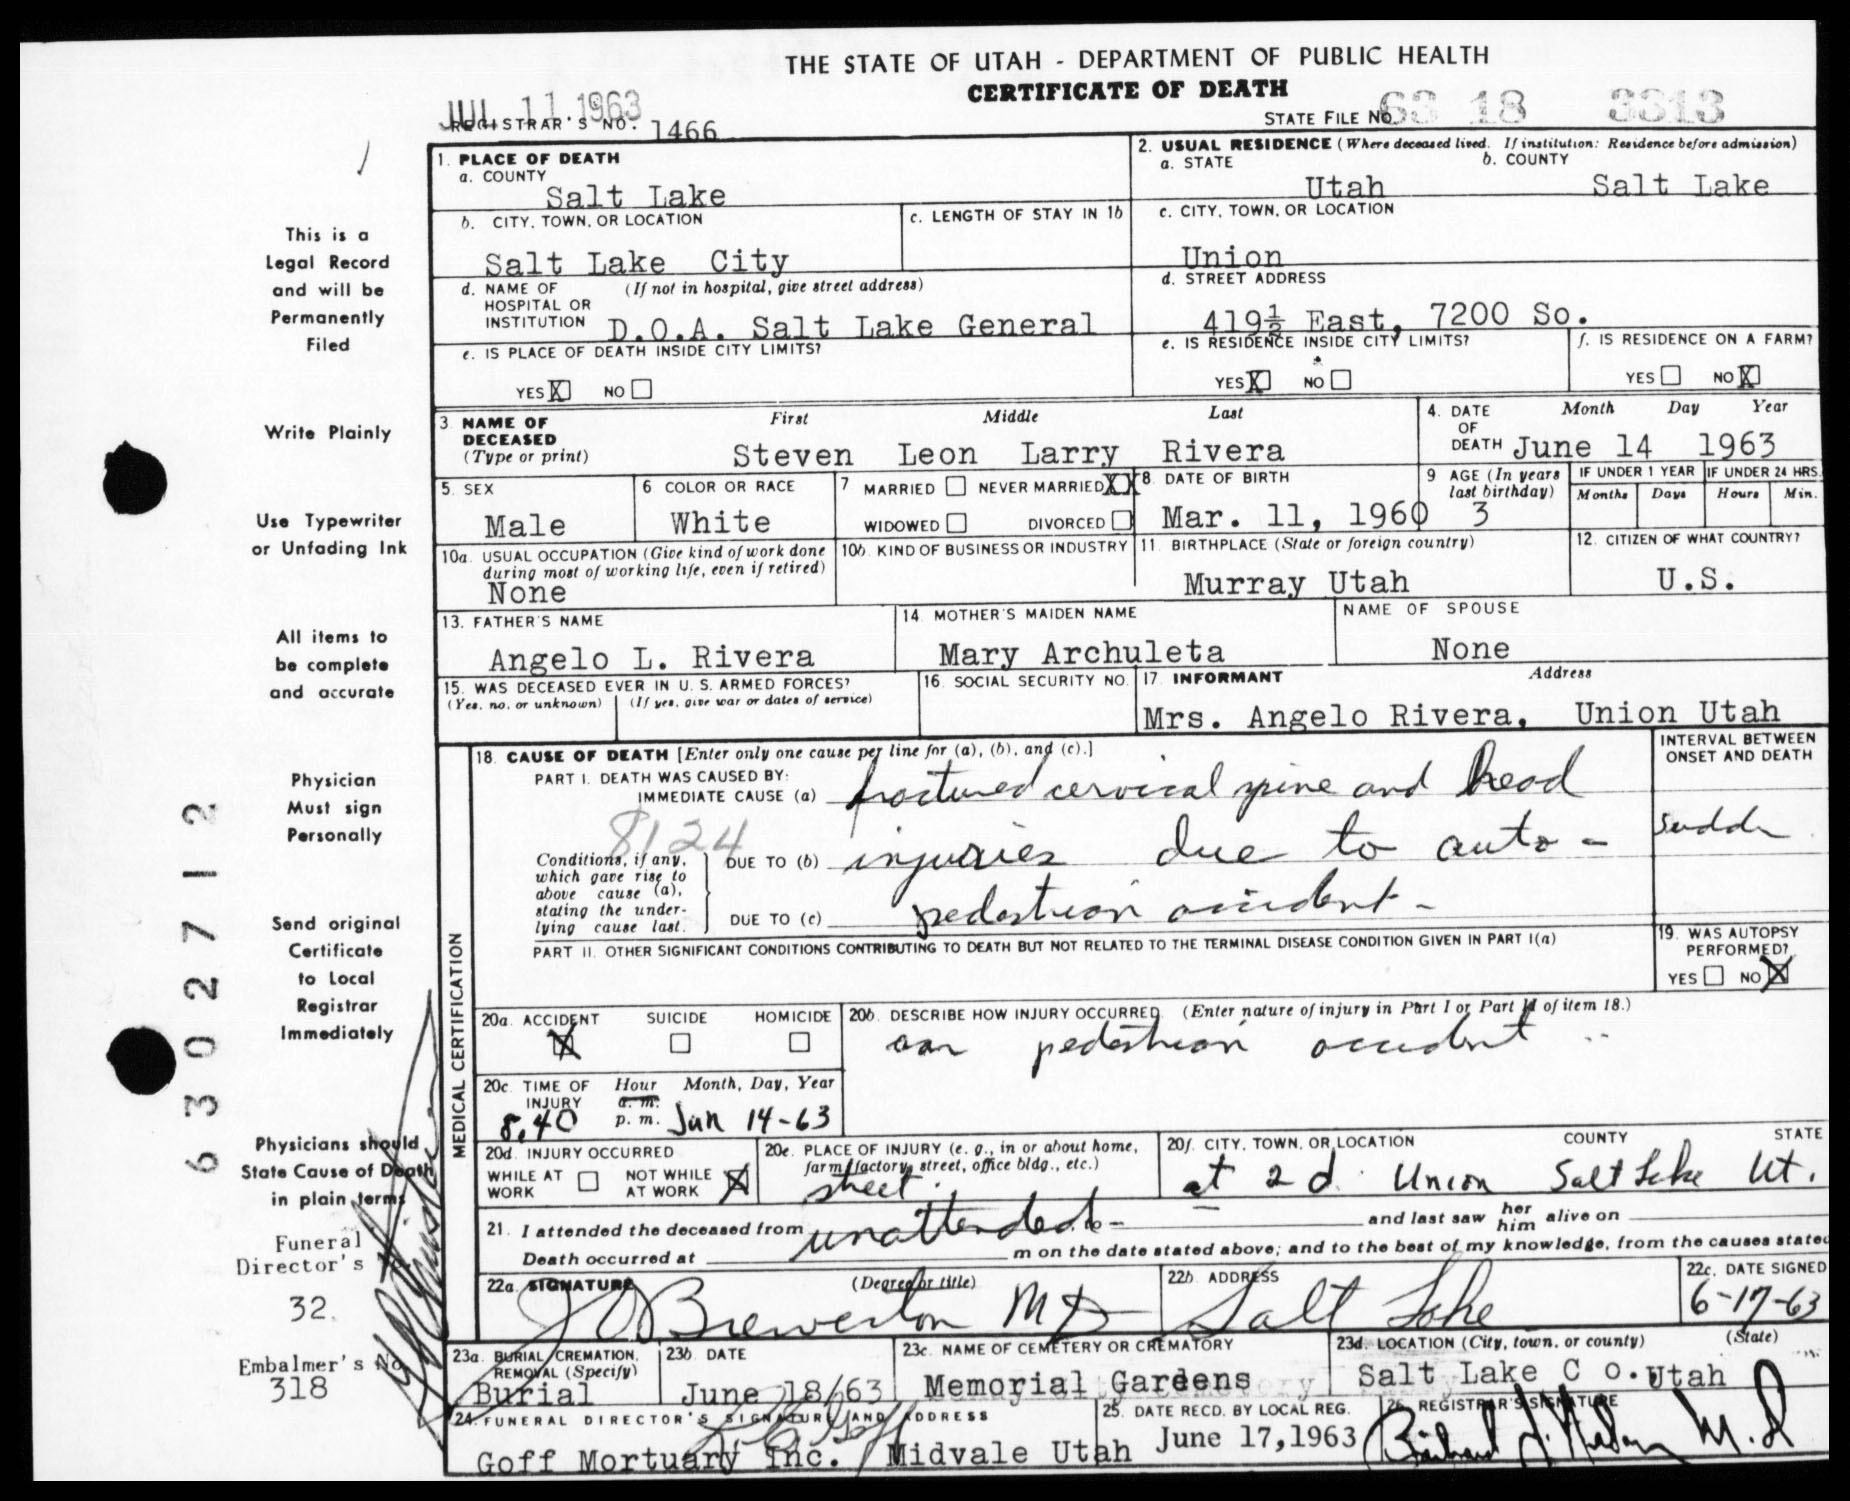 THE STATE OF UTAH - DEPARTMENT OF PUBLIC HEALTH
CERTIFICATE OF DEATH
JUL 11 1963
REGISTRAR'S NO. 1466
STATE FILE NO. 63 18 3313
1. PLACE OF DEATH
a. COUNTY
Salt Lake
2. USUAL RESIDENCE (Where deceased lived. If institution: Residence before admission)
a. STATE
Utah
b. COUNTY
Salt Lake
b. CITY, TOWN, OR LOCATION
Salt Lake City
c. LENGTH OF STAY IN 1b
c. CITY, TOWN, OR LOCATION
Union
d. NAME OF HOSPITAL OR INSTITUTION (If not in hospital, give street address)
D.O.A. Salt Lake General
d. STREET ADDRESS
419½ East, 7200 So.
e. IS PLACE OF DEATH INSIDE CITY LIMITS?
YES X NO
e. IS RESIDENCE INSIDE CITY LIMITS?
YES X NO
f. IS RESIDENCE ON A FARM?
YES NO X
3. NAME OF DECEASED (Type or print)
First Middle Last
Steven Leon Larry Rivera
4. DATE OF DEATH
Month Day Year
June 14 1963
5. SEX
Male
6 COLOR OR RACE
White
7 MARRIED NEVER MARRIED XX
WIDOWED DIVORCED
8. DATE OF BIRTH
Mar. 11, 1960
9 AGE (In years last birthday)
3
IF UNDER 1 YEAR
Months Days
IF UNDER 24 HRS.
Hours Min.
10a. USUAL OCCUPATION (Give kind of work done during most of working life, even if retired)
None
10b. KIND OF BUSINESS OR INDUSTRY
11. BIRTHPLACE (State or foreign country)
Murray Utah
12. CITIZEN OF WHAT COUNTRY?
U.S.
13. FATHER'S NAME
Angelo L. Rivera
14. MOTHER'S MAIDEN NAME
Mary Archuleta
NAME OF SPOUSE
None
15. WAS DECEASED EVER IN U.S. ARMED FORCES?
(Yes, no, or unknown) (If yes, give war or dates of service)
16. SOCIAL SECURITY NO.
17. INFORMANT Address
Mrs. Angelo Rivera, Union Utah
MEDICAL CERTIFICATION
18. CAUSE OF DEATH [Enter only one cause per line for (a), (b), and (c).]
INTERVAL BETWEEN ONSET AND DEATH
PART I. DEATH WAS CAUSED BY:
IMMEDIATE CAUSE (a) fractured cervical spine and head
8124
Conditions, if any, which gave rise to above cause (a), stating the underlying cause last.
DUE TO (b) injuries due to auto-
DUE TO (c) pedestrian accident-
PART II. OTHER SIGNIFICANT CONDITIONS CONTRIBUTING TO DEATH BUT NOT RELATED TO THE TERMINAL DISEASE CONDITION GIVEN IN PART I(a)
19. WAS AUTOPSY PERFORMED?
YES NO X
20a. ACCIDENT X SUICIDE HOMICIDE
20b. DESCRIBE HOW INJURY OCCURRED. (Enter nature of injury in Part I or Part II of item 18.)
car pedestrian accident
20c. TIME OF INJURY
Hour Month, Day, Year
8:40 a.m. p.m. Jun 14-63
20d. INJURY OCCURRED
WHILE AT WORK NOT WHILE AT WORK X
20e. PLACE OF INJURY (e. g., in or about home, farm, factory, street, office bldg., etc.)
street
20f. CITY, TOWN, OR LOCATION COUNTY STATE
at 2 d. Union Salt Lake Ut.
21. I attended the deceased from unattended to - and last saw her him alive on
Death occurred at m on the date stated above; and to the best of my knowledge, from the causes stated
22a. SIGNATURE (Degree or title)
Brewerton MD
22b. ADDRESS
Salt Lake
22c. DATE SIGNED
6-17-63
23a. BURIAL, CREMATION, REMOVAL (Specify)
Burial
23b. DATE
June 18/63
23c. NAME OF CEMETERY OR CREMATORY
Memorial Gardens
23d. LOCATION (City, town, or county) (State)
Salt Lake C o. Utah
24. FUNERAL DIRECTOR'S SIGNATURE AND ADDRESS
Goff Mortuary Inc. Midvale Utah
25. DATE RECD. BY LOCAL REG.
June 17, 1963
26. REGISTRAR'S SIGNATURE
M.D
This is a
Legal Record
and will be
Permanently
Filed
Write Plainly
Use Typewriter
or Unfading Ink
All items to
be complete
and accurate
Physician
Must sign
Personally
Send original
Certificate
to Local
Registrar
Immediately
Physicians should
State Cause of Death
in plain terms
Funeral
Director's No.
32.
Embalmer's No.
318
63027712